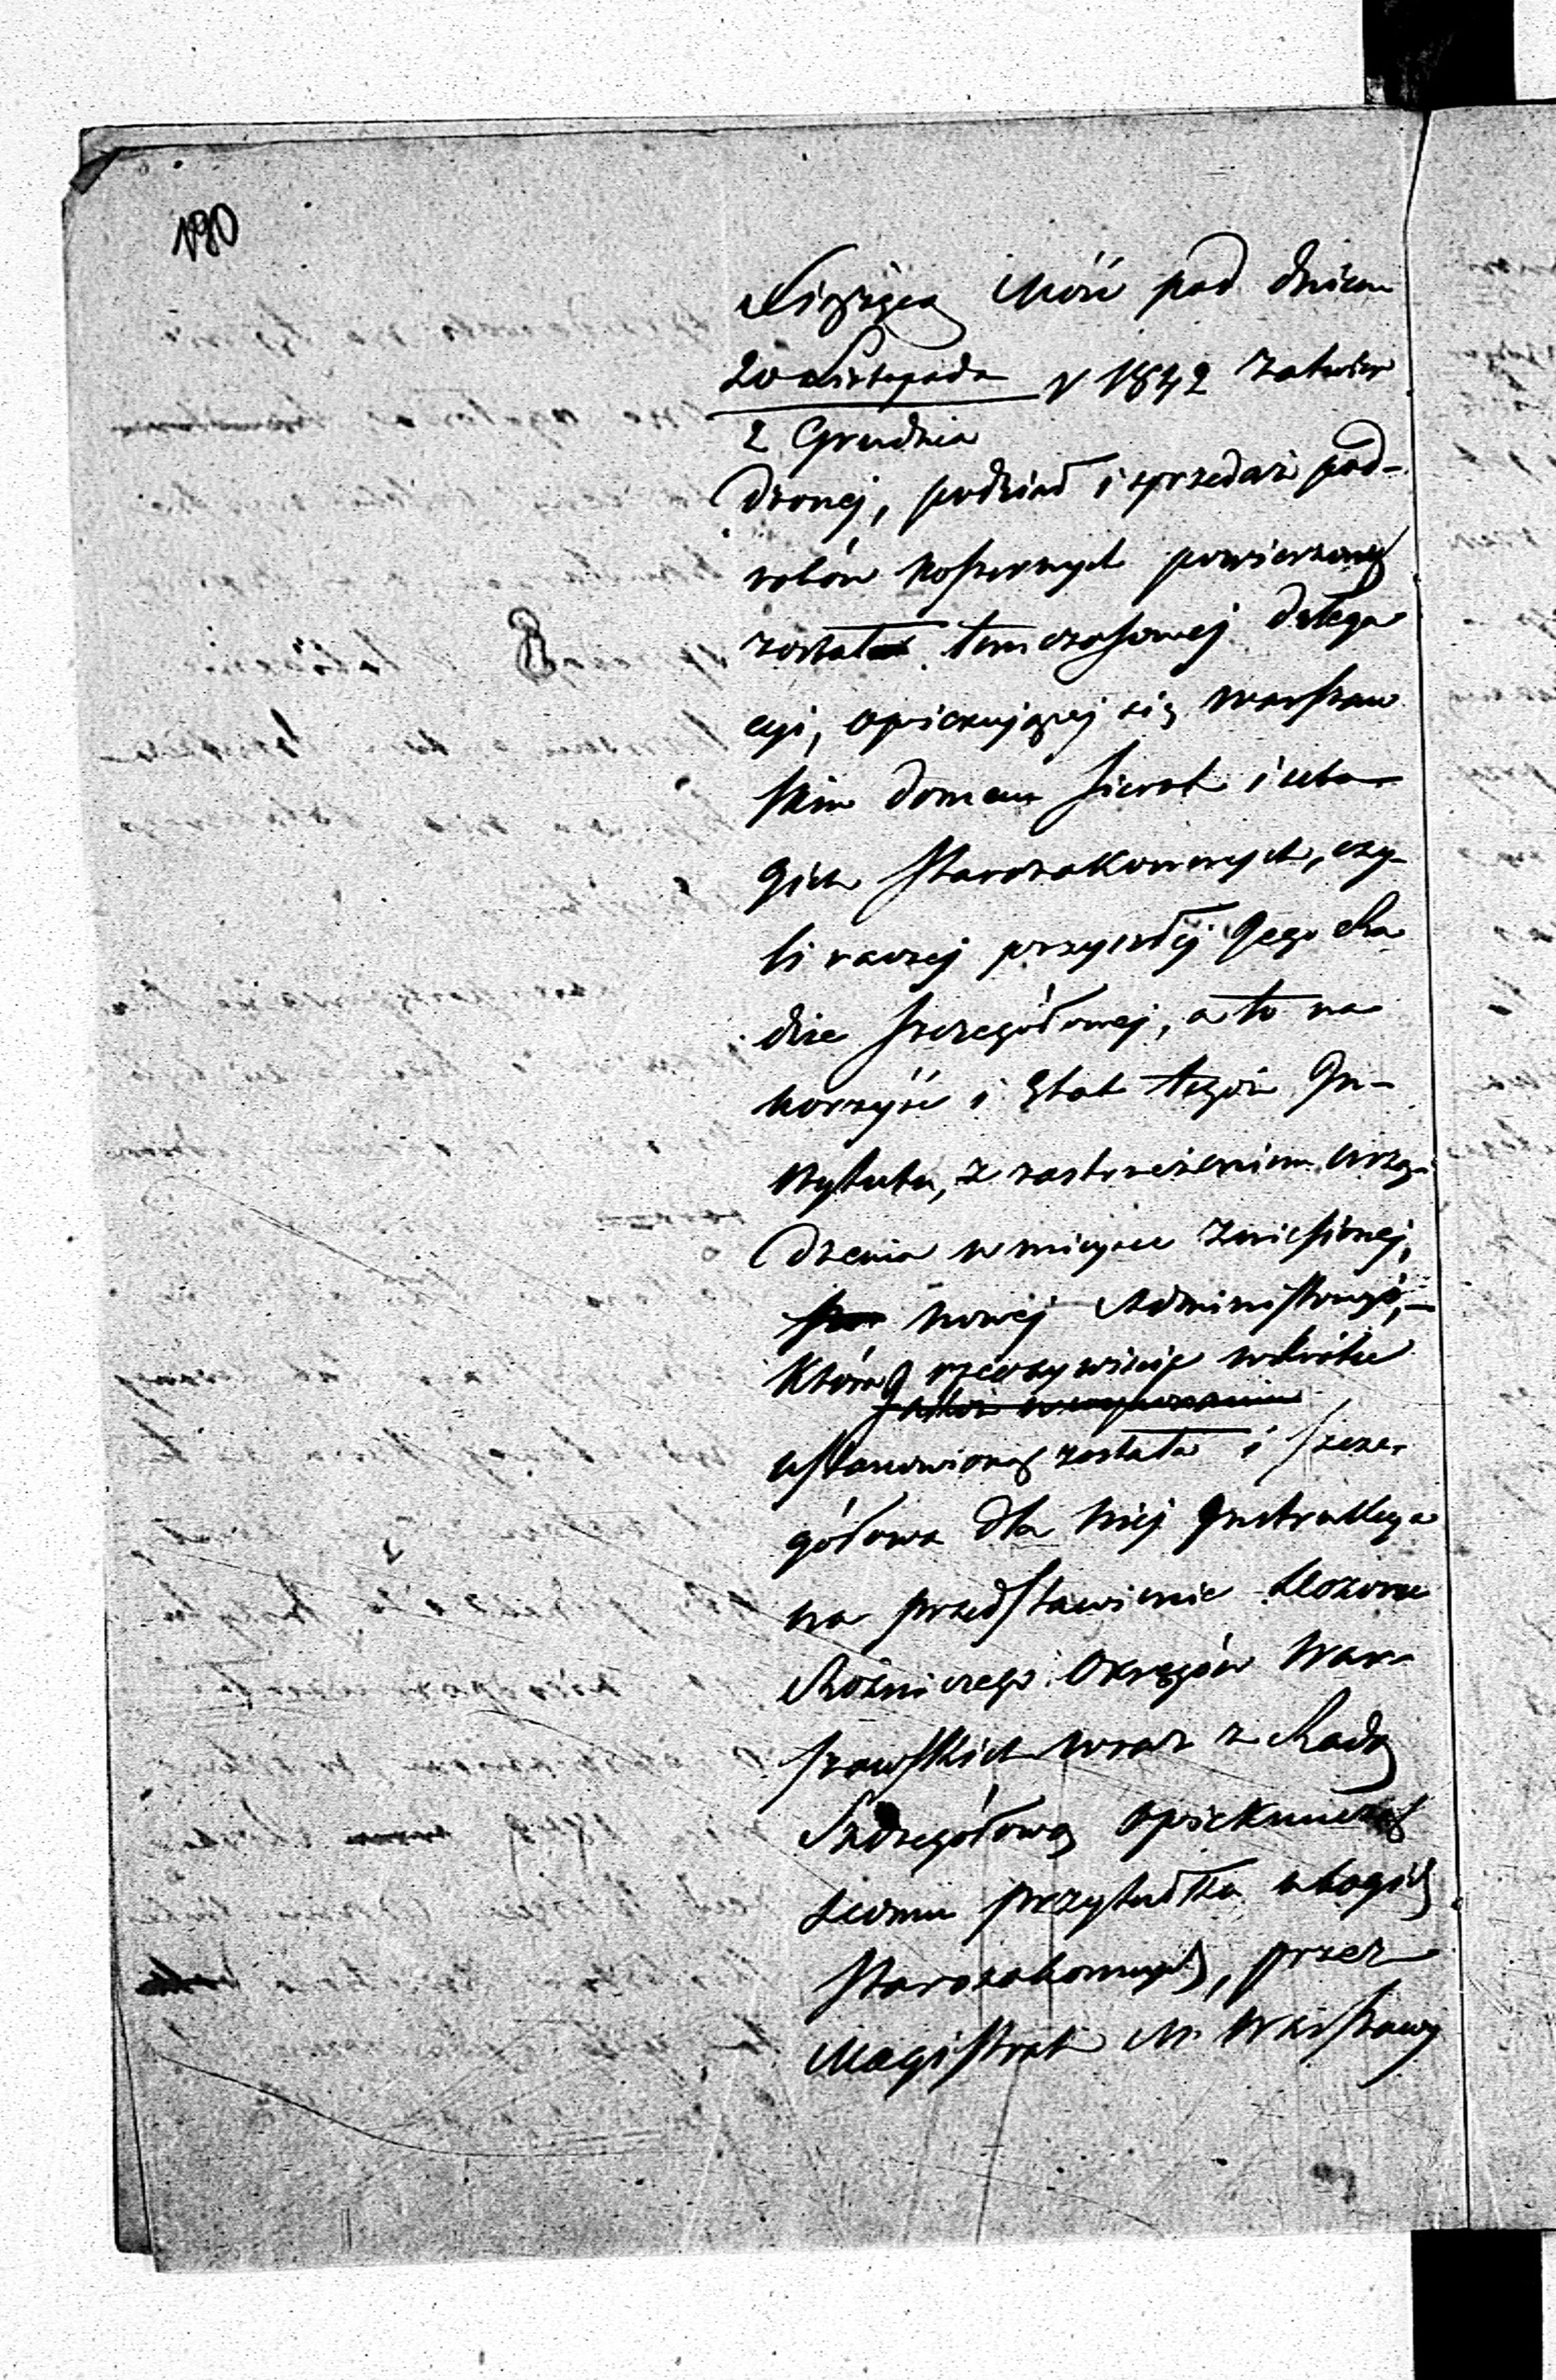 190
Xiążęcą Mość pod dniem
20 Listopada r 1842 zatwier
2 Grudnia
dzonej, podział i sprzedaż pod-
robów koszernych powierzoną
została tymczasowej Delega
cyi, opiekującej się Warszaw
skim domem Sierot i ubo-
gich Starozakonnych, czy-
li raczej przyszłej Jego Ra
dzie Szczegółowej, a to na
korzyść i Etat tegoż In-
stytutu, z zastrzeżeniem urzą-
dzenia w miejsce zniesionej,
nowej Administracyi,
która rzeczywiście wkrótce
ustanowioną została i szcze-
gółowa dla niej Instrukcya
na przedstawienie Dozoru
Bóżniczego Okręgów War-
szawskich wraz z Radą
Szczegółową Opiekuńczą
Domu przytułku ubogich
Starozakonnych, przez
Magistrat M. Warszawy